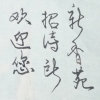 新香苑
招待所
欢迎您